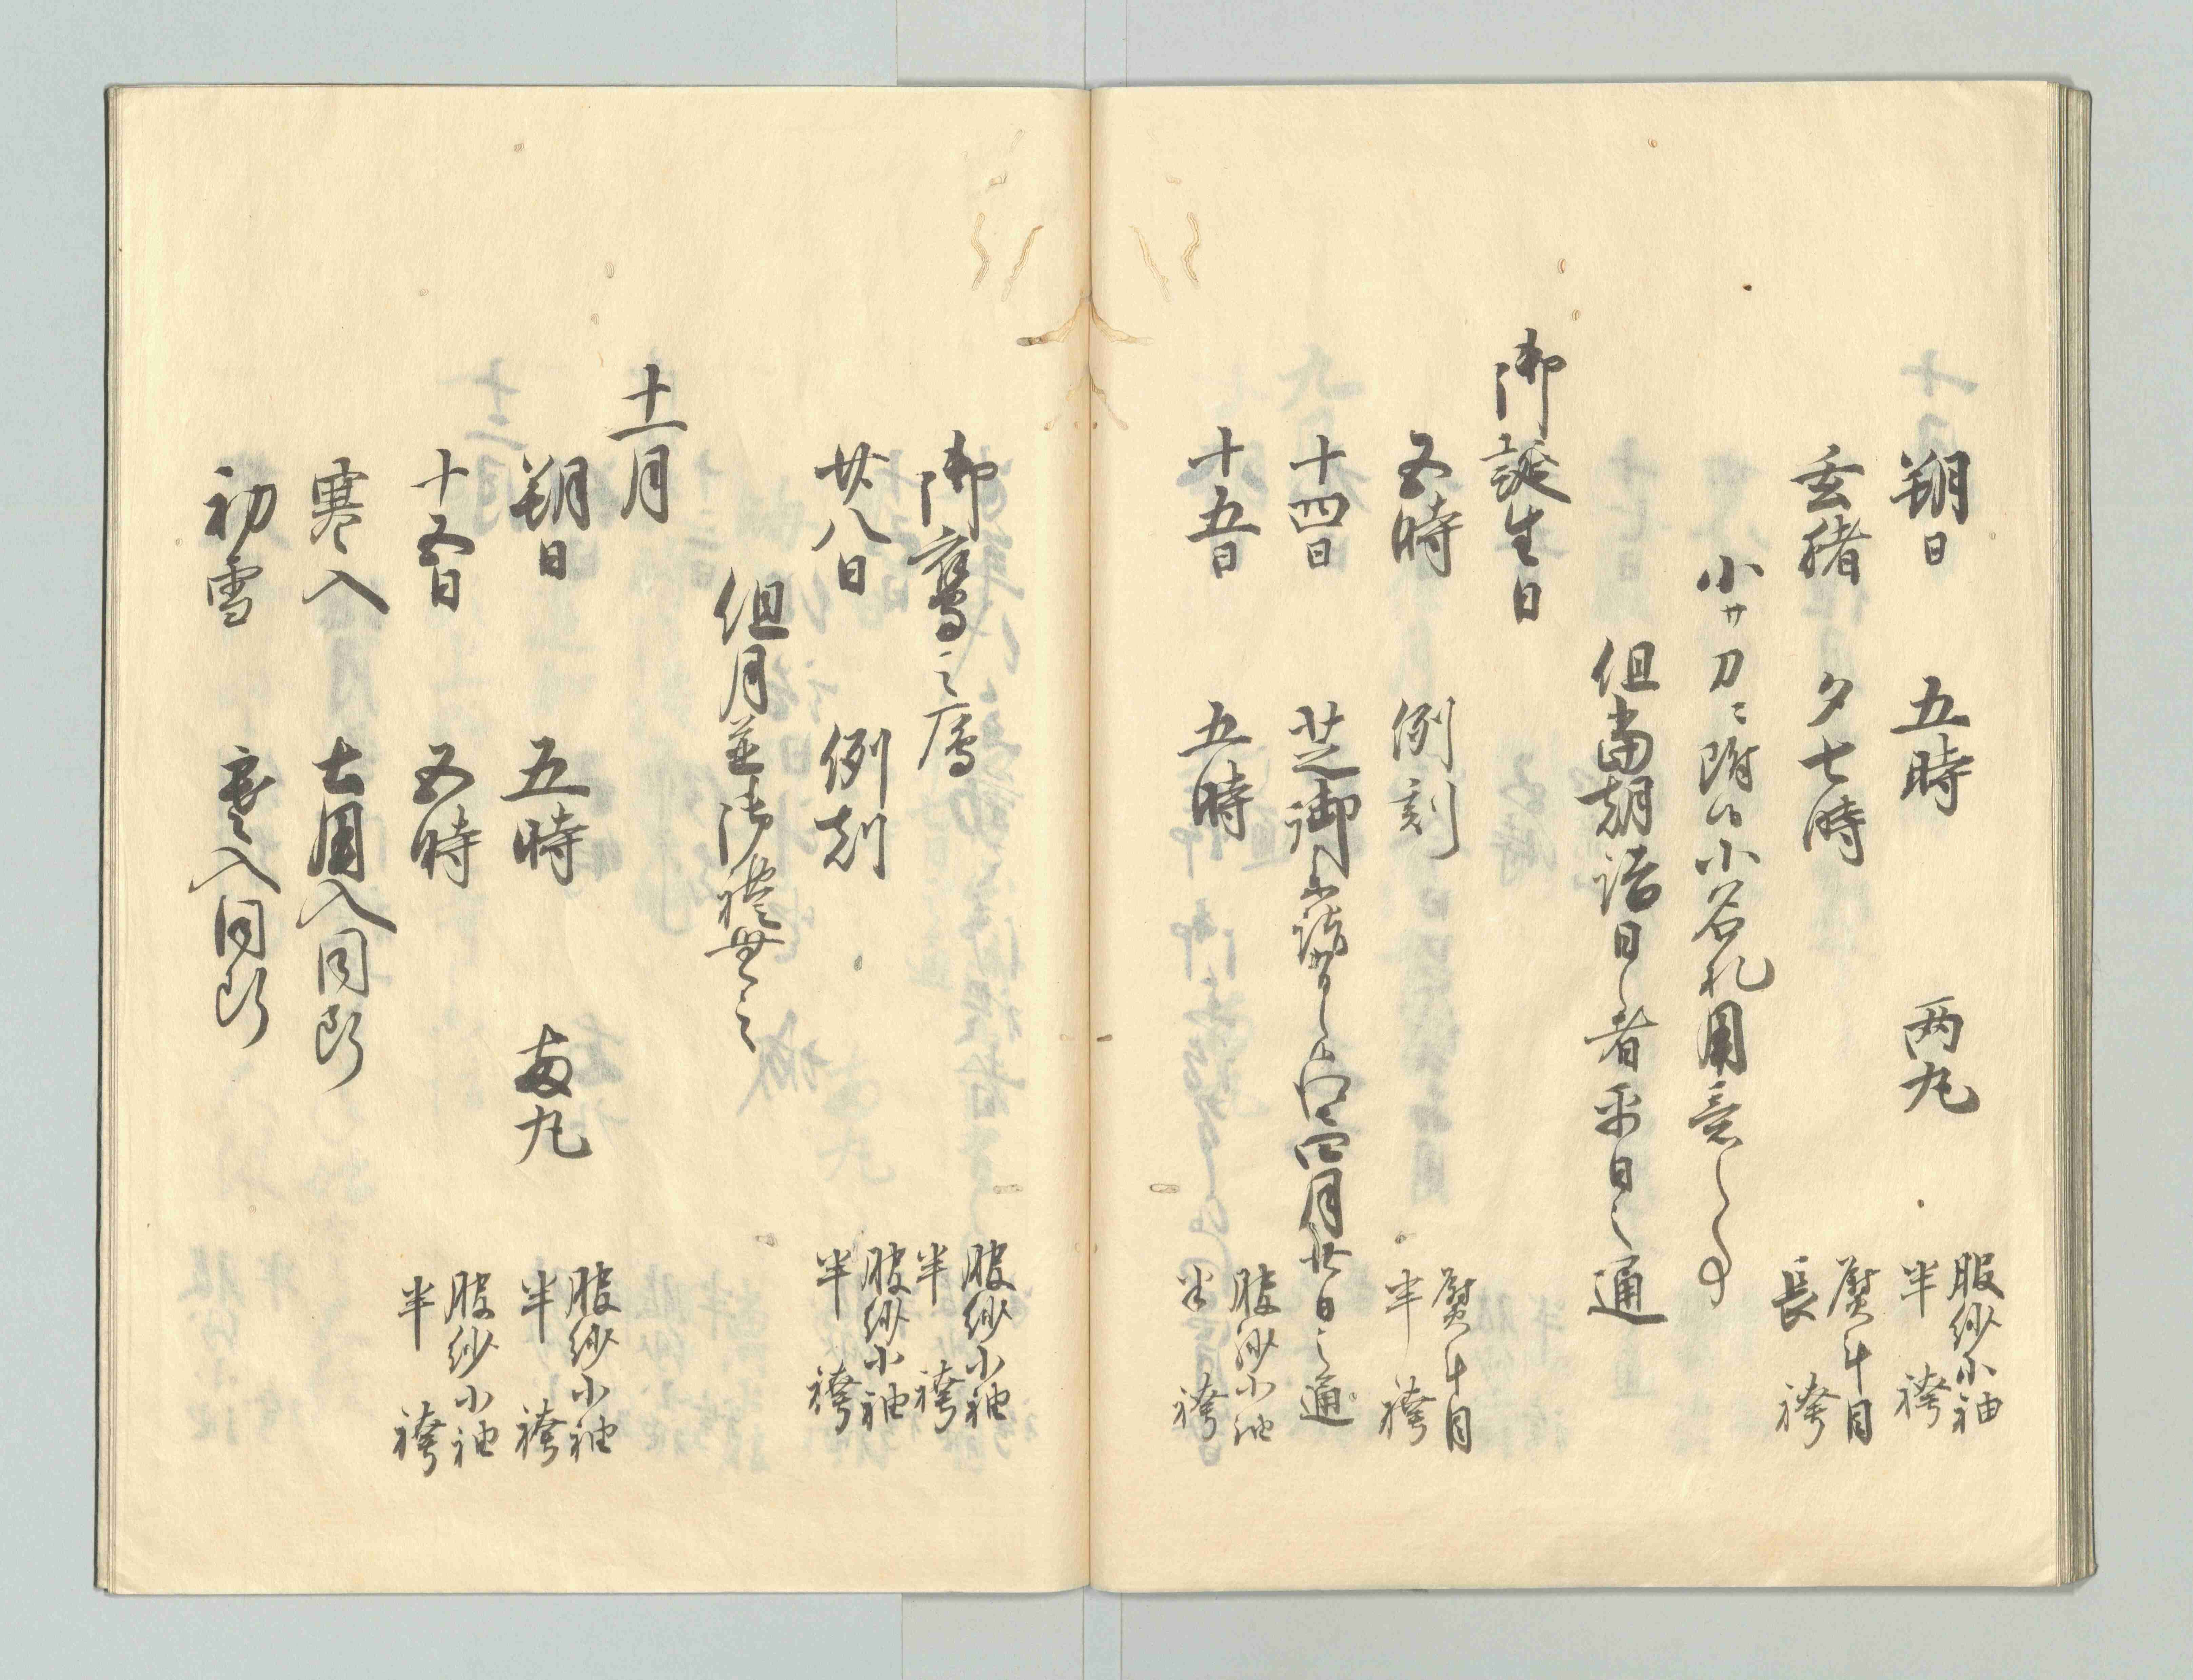 朔日　五時　両丸　服紗小袖　半袴
玄猪　夕七時　熨斗目　長袴
小サ刀ニ附候小名札用意
但當朝詰日之者平日之通
御誕生日
五時　例刻　熨斗目　半袴
十四日　芝御　四月廿日之通
十五日　五時　服紗小袖　半袴
御鷹之鴈　服紗小袖　半袴
廿八日　例刻　服紗小袖　半袴
但月並御禮無之
十一月
朔日　五時　両丸　服紗小袖　半袴
十五日　五時　服紗小袖　半袴
寒入　土用入同断
初雪　寒入同断